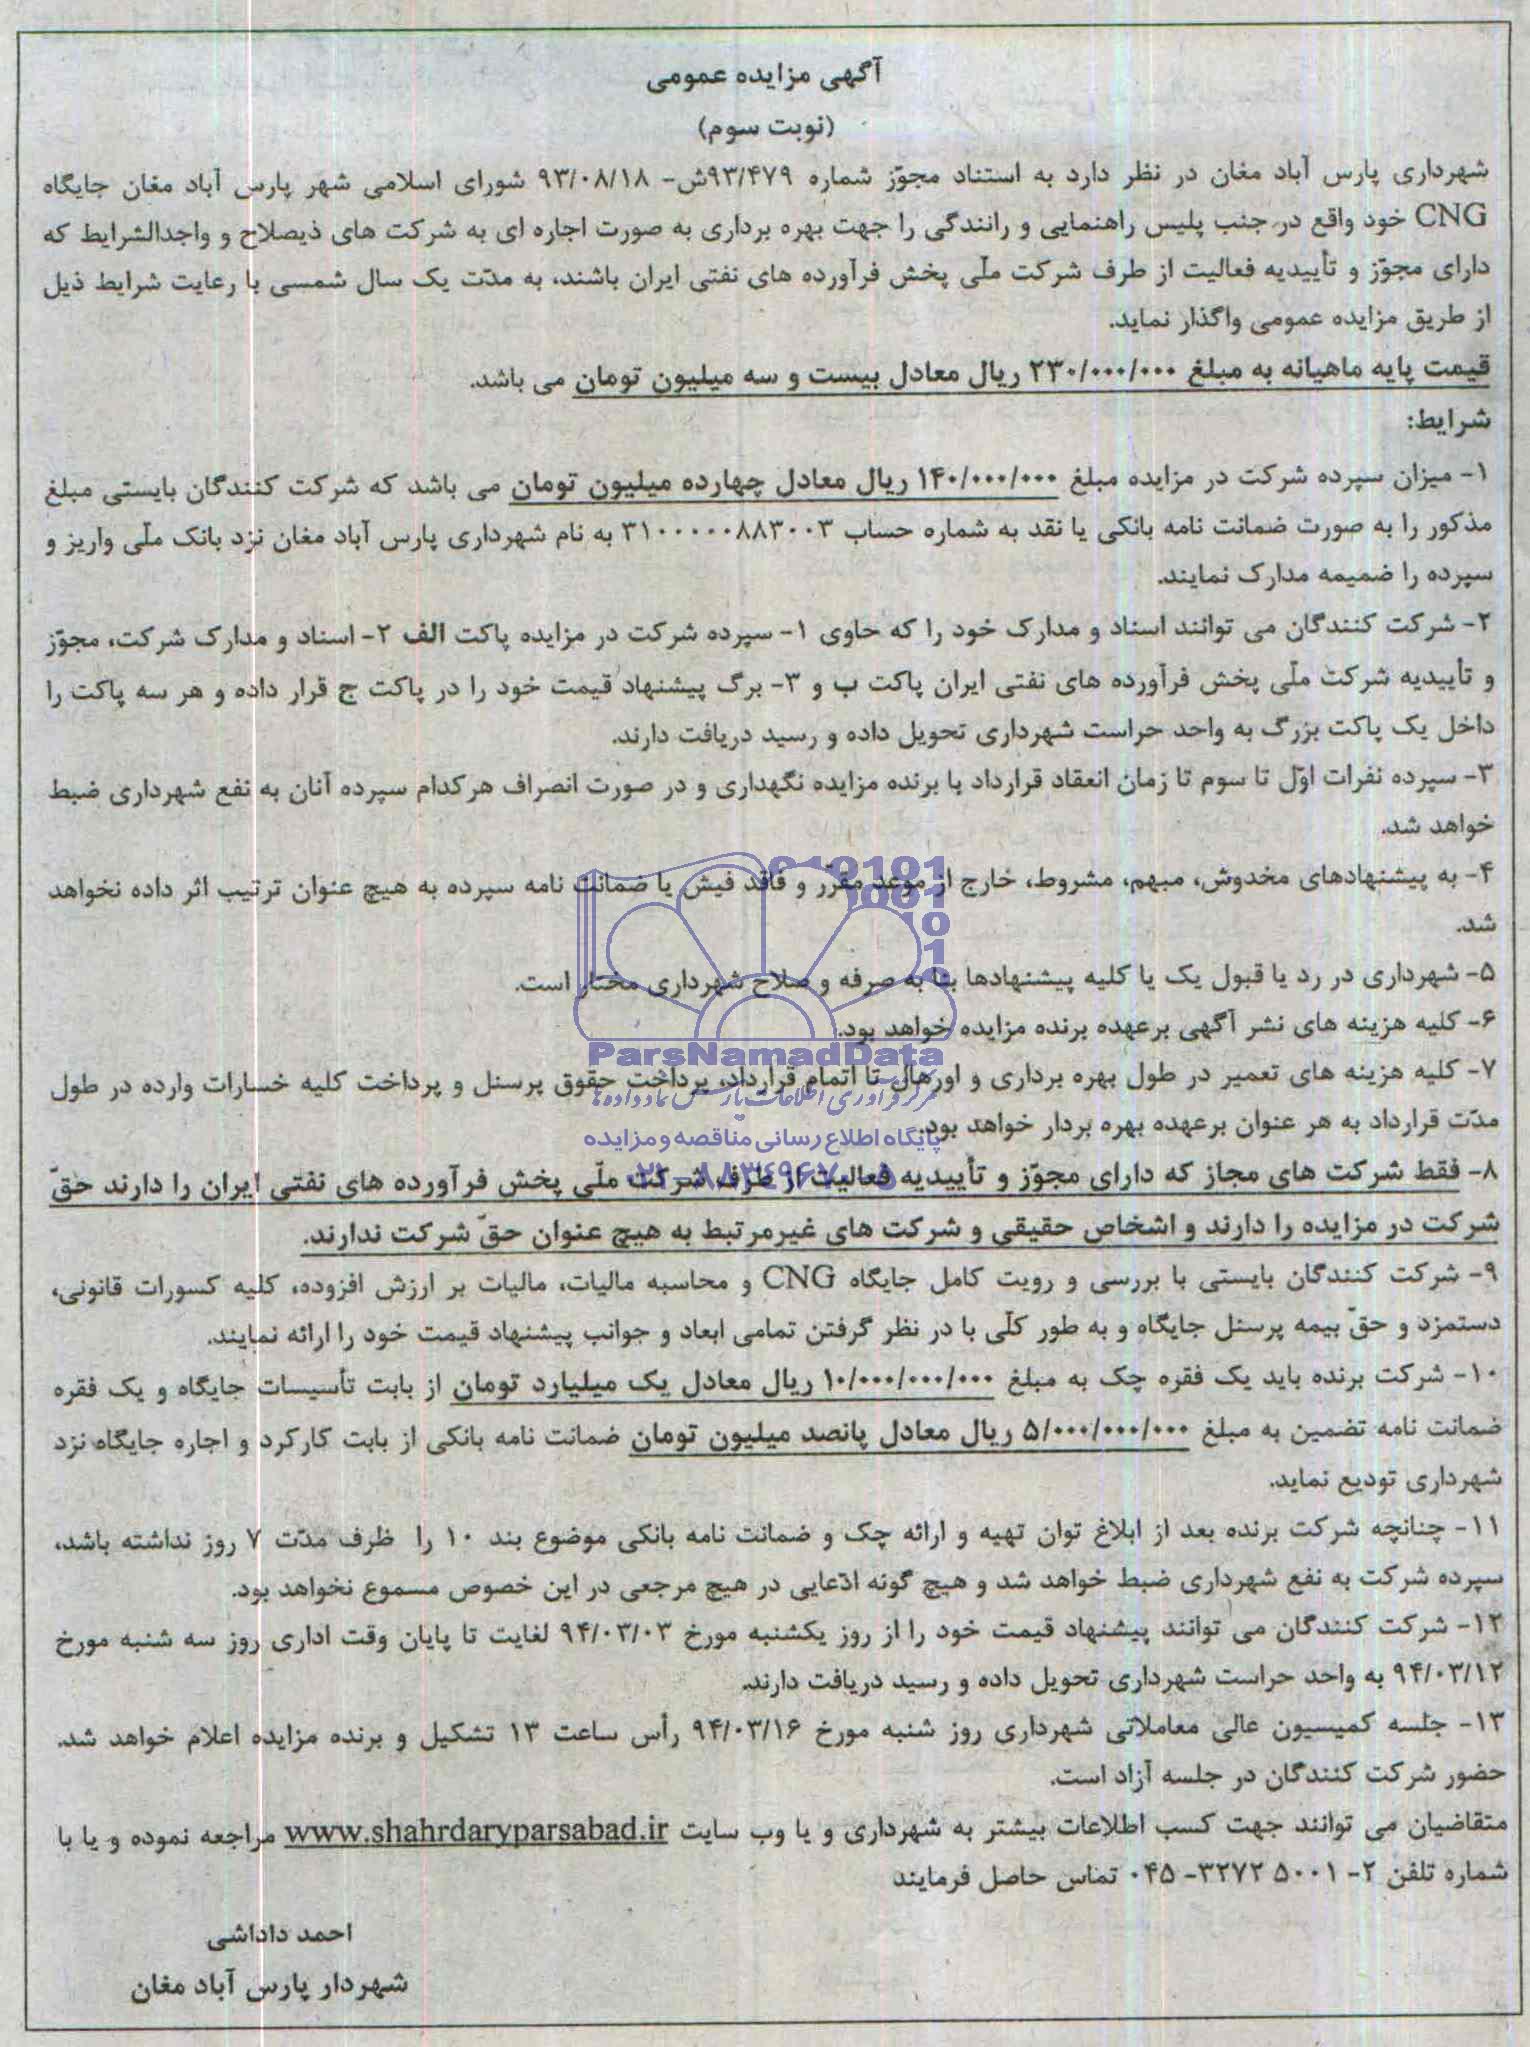 آگهی مزایده عمومی
(نوبت سوم)
شهرداری پارس آباد مغان در نظر دارد به استناد مجوّز شماره ۹۳/۴۷۹ش- ۹۳/۰۸/۱۸ شورای اسلامی شهر پارس آباد مغان جایگاه
CNG خود واقع در جنب پلیس راهنمایی و رانندگی را جهت بهره برداری به صورت اجاره ای به شرکت های ذیصلاح و واجدالشرایط که
دارای مجوّز و تأییدیه فعالیت از طرف شرکت ملّی پخش فرآورده های نفتی ایران باشند، به مدّت یک سال شمسی با رعایت شرایط ذیل
از طریق مزایده عمومی واگذار نماید.
قیمت پایه ماهیانه به مبلغ ۲۳۰/۰۰۰/۰۰۰ ریال معادل بیست و سه میلیون تومان می باشد.
شرایط:
۱- میزان سپرده شرکت در مزایده مبلغ ۱۴۰/۰۰۰/۰۰۰ ریال معادل چهارده میلیون تومان می باشد که شرکت کنندگان بایستی مبلغ
مذکور را به صورت ضمانت نامه بانکی یا نقد به شماره حساب ۳۱۰۰۰۰۰۸۸۳۰۰۳ به نام شهرداری پارس آباد مغان نزد بانک ملّی واریز و
سپرده را ضمیمه مدارک نمایند.
۲- شرکت کنندگان می توانند اسناد و مدارک خود را که حاوی ۱- سپرده شرکت در مزایده پاکت الف ۲- اسناد و مدارک شرکت، مجوّز
و تأییدیه شرکت ملّی پخش فرآورده های نفتی ایران پاکت ب و ۳- برگ پیشنهاد قیمت خود را در پاکت ج قرار داده و هر سه پاکت را
داخل یک پاکت بزرگ به واحد حراست شهرداری تحویل داده و رسید دریافت دارند.
۳- سپرده نفرات اوّل تا سوم تا زمان انعقاد قرارداد با برنده مزایده نگهداری و در صورت انصراف هرکدام سپرده آنان به نفع شهرداری ضبط
خواهد شد.
۴- به پیشنهادهای مخدوش، مبهم، مشروط، خارج از موعد مقرّر و فاقد فیش یا ضمانت نامه سپرده به هیچ عنوان ترتیب اثر داده نخواهد
شد.
۵- شهرداری در رد یا قبول یک یا کلیه پیشنهادها بنا به صرفه و صلاح شهرداری مختار است.
۶- کلیه هزینه های نشر آگهی برعهده برنده مزایده خواهد بود.
ParsNamadData
۷- کلیه هزینه های تعمیر در طول بهره برداری و اورهال تا اتمام قرارداد، پرداخت حقوق پرسنل و پرداخت کلیه خسارات وارده در طول
مرکز فرآوری اطلاعات پارس نماد داده ها
مدّت قرارداد به هر عنوان برعهده بهره بردار خواهد بود.
پایگاه اطلاع رسانی مناقصه و مزایده
۰۲۱-۸۸۳۴۹۶۷۰-۵
۸- فقط شرکت های مجاز که دارای مجوّز و تأییدیه فعالیت از طرف شرکت ملّی پخش فرآورده های نفتی ایران را دارند حقّ
شرکت در مزایده را دارند و اشخاص حقیقی و شرکت های غیرمرتبط به هیچ عنوان حقّ شرکت ندارند.
۹- شرکت کنندگان بایستی با بررسی و رویت کامل جایگاه CNG و محاسبه مالیات، مالیات بر ارزش افزوده، کلیه کسورات قانونی،
دستمزد و حقّ بیمه پرسنل جایگاه و به طور کلّی با در نظر گرفتن تمامی ابعاد و جوانب پیشنهاد قیمت خود را ارائه نمایند.
۱۰- شرکت برنده باید یک فقره چک به مبلغ ۱۰/۰۰۰/۰۰۰/۰۰۰ ریال معادل یک میلیارد تومان از بابت تأسیسات جایگاه و یک فقره
ضمانت نامه تضمین به مبلغ ۵/۰۰۰/۰۰۰/۰۰۰ ریال معادل پانصد میلیون تومان ضمانت نامه بانکی از بابت کارکرد و اجاره جایگاه نزد
شهرداری تودیع نماید.
۱۱- چنانچه شرکت برنده بعد از ابلاغ توان تهیه و ارائه چک و ضمانت نامه بانکی موضوع بند ۱۰ را ظرف مدّت ۷ روز نداشته باشد،
سپرده شرکت به نفع شهرداری ضبط خواهد شد و هیچ گونه ادّعایی در هیچ مرجعی در این خصوص مسموع نخواهد بود.
۱۲- شرکت کنندگان می توانند پیشنهاد قیمت خود را از روز یکشنبه مورخ ۹۴/۰۳/۰۳ لغایت تا پایان وقت اداری روز سه شنبه مورخ
۹۴/۰۳/۱۲ به واحد حراست شهرداری تحویل داده و رسید دریافت دارند.
۱۳- جلسه کمیسیون عالی معاملاتی شهرداری روز شنبه مورخ ۹۴/۰۳/۱۶ رأس ساعت ۱۳ تشکیل و برنده مزایده اعلام خواهد شد.
حضور شرکت کنندگان در جلسه آزاد است.
متقاضیان می توانند جهت کسب اطلاعات بیشتر به شهرداری و یا وب سایت www.shahrdaryparsabad.ir مراجعه نموده و یا با
شماره تلفن ۲- ۳۲۷۲۵۰۰۱- ۰۴۵ تماس حاصل فرمایند
احمد داداشی
شهردار پارس آباد مغان